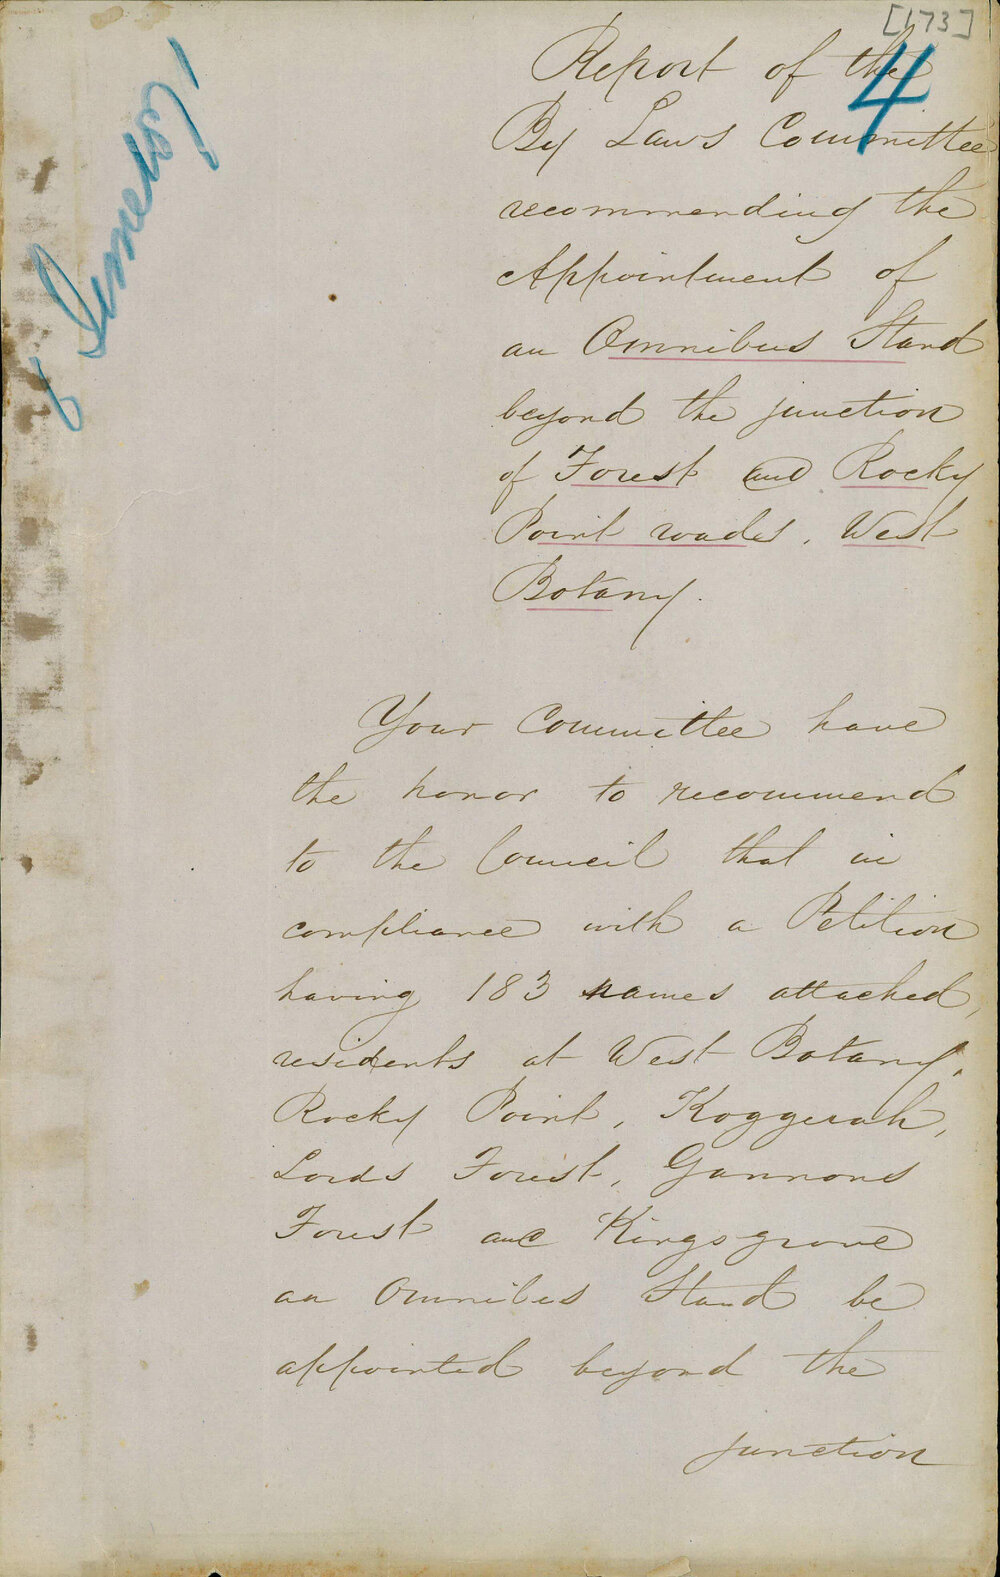 [173]
4
Report of the
By Laws Committee
recommending the
Appointment of
an Omnibus Stand
beyond the junction
of Forest and Rocky
Point roades, West
Botany.
Your Committee have
the honor to recommend
to the Council that in
compliance with a Petition
having 183 names attached,
residents at West Botany,
Rocky Point, Koggerah,
Lords Forest, Gannons
Forest and Kingsgrove
an Omnibus Stand be
appointed beyond the
junction